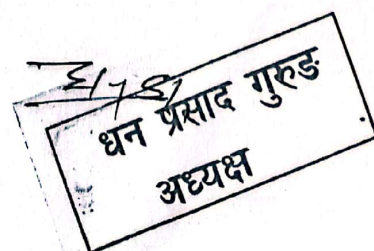 धन प्रसाद गुरुङ
अध्यक्ष